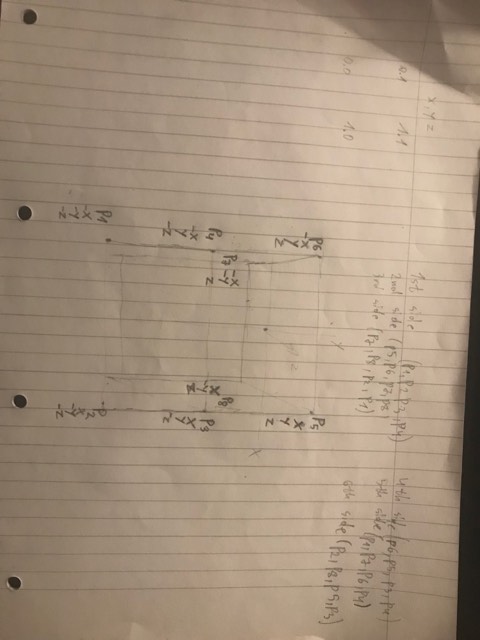 x, y z
1st side (p1, p2, p3, p4)
0.1 1.1
2nd side (p5, p6, p7, p8
3rd side (p7, p8, p2, p1)
4th side (p6, p5, p3, p4)
5th side (p1, p7, p6, p4)
6th side (p2, p8, p5, p3)
0.0 1.0
Y
P6
-X
Y
Z
P5
X
Y
Z
X
P7
-X
-Y
Z
P8
X
-Y
Z
P4
-X
Y
-Z
P3
X
Y
-Z
P1
-X
-Y
-Z
P2
X
-Y
-Z